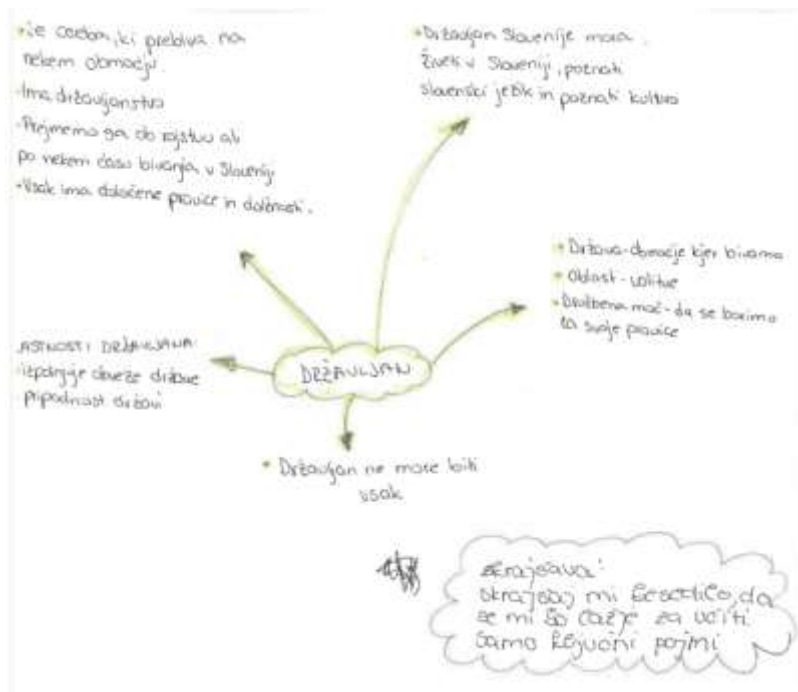 •Je oseba, ki prebiva na
nekem območju.
•Ima državljanstvo
•Prejmemo ga ob rojstvu ali
po nekem času bivanja v Sloveniji
•Vsak ima določene pravice in dolžnosti.
•Državljan Slovenije mora
živet v Sloveniji, poznati
slovenski jezik in poznati kulturo
•Država-območje kjer bivamo
•Oblast-volitve
•Družbena moč-da se borimo
za svoje pravice
ASTNOSTI DRŽAVLJANA:
izpolnjuje obveze države
pripadnost državi
DRŽAVLJAN
•Državljan ne more biti
vsak
skrajšava:
skrajšaj mi besedilo, da
se mi bo lažje za učiti
samo ključni pojmi